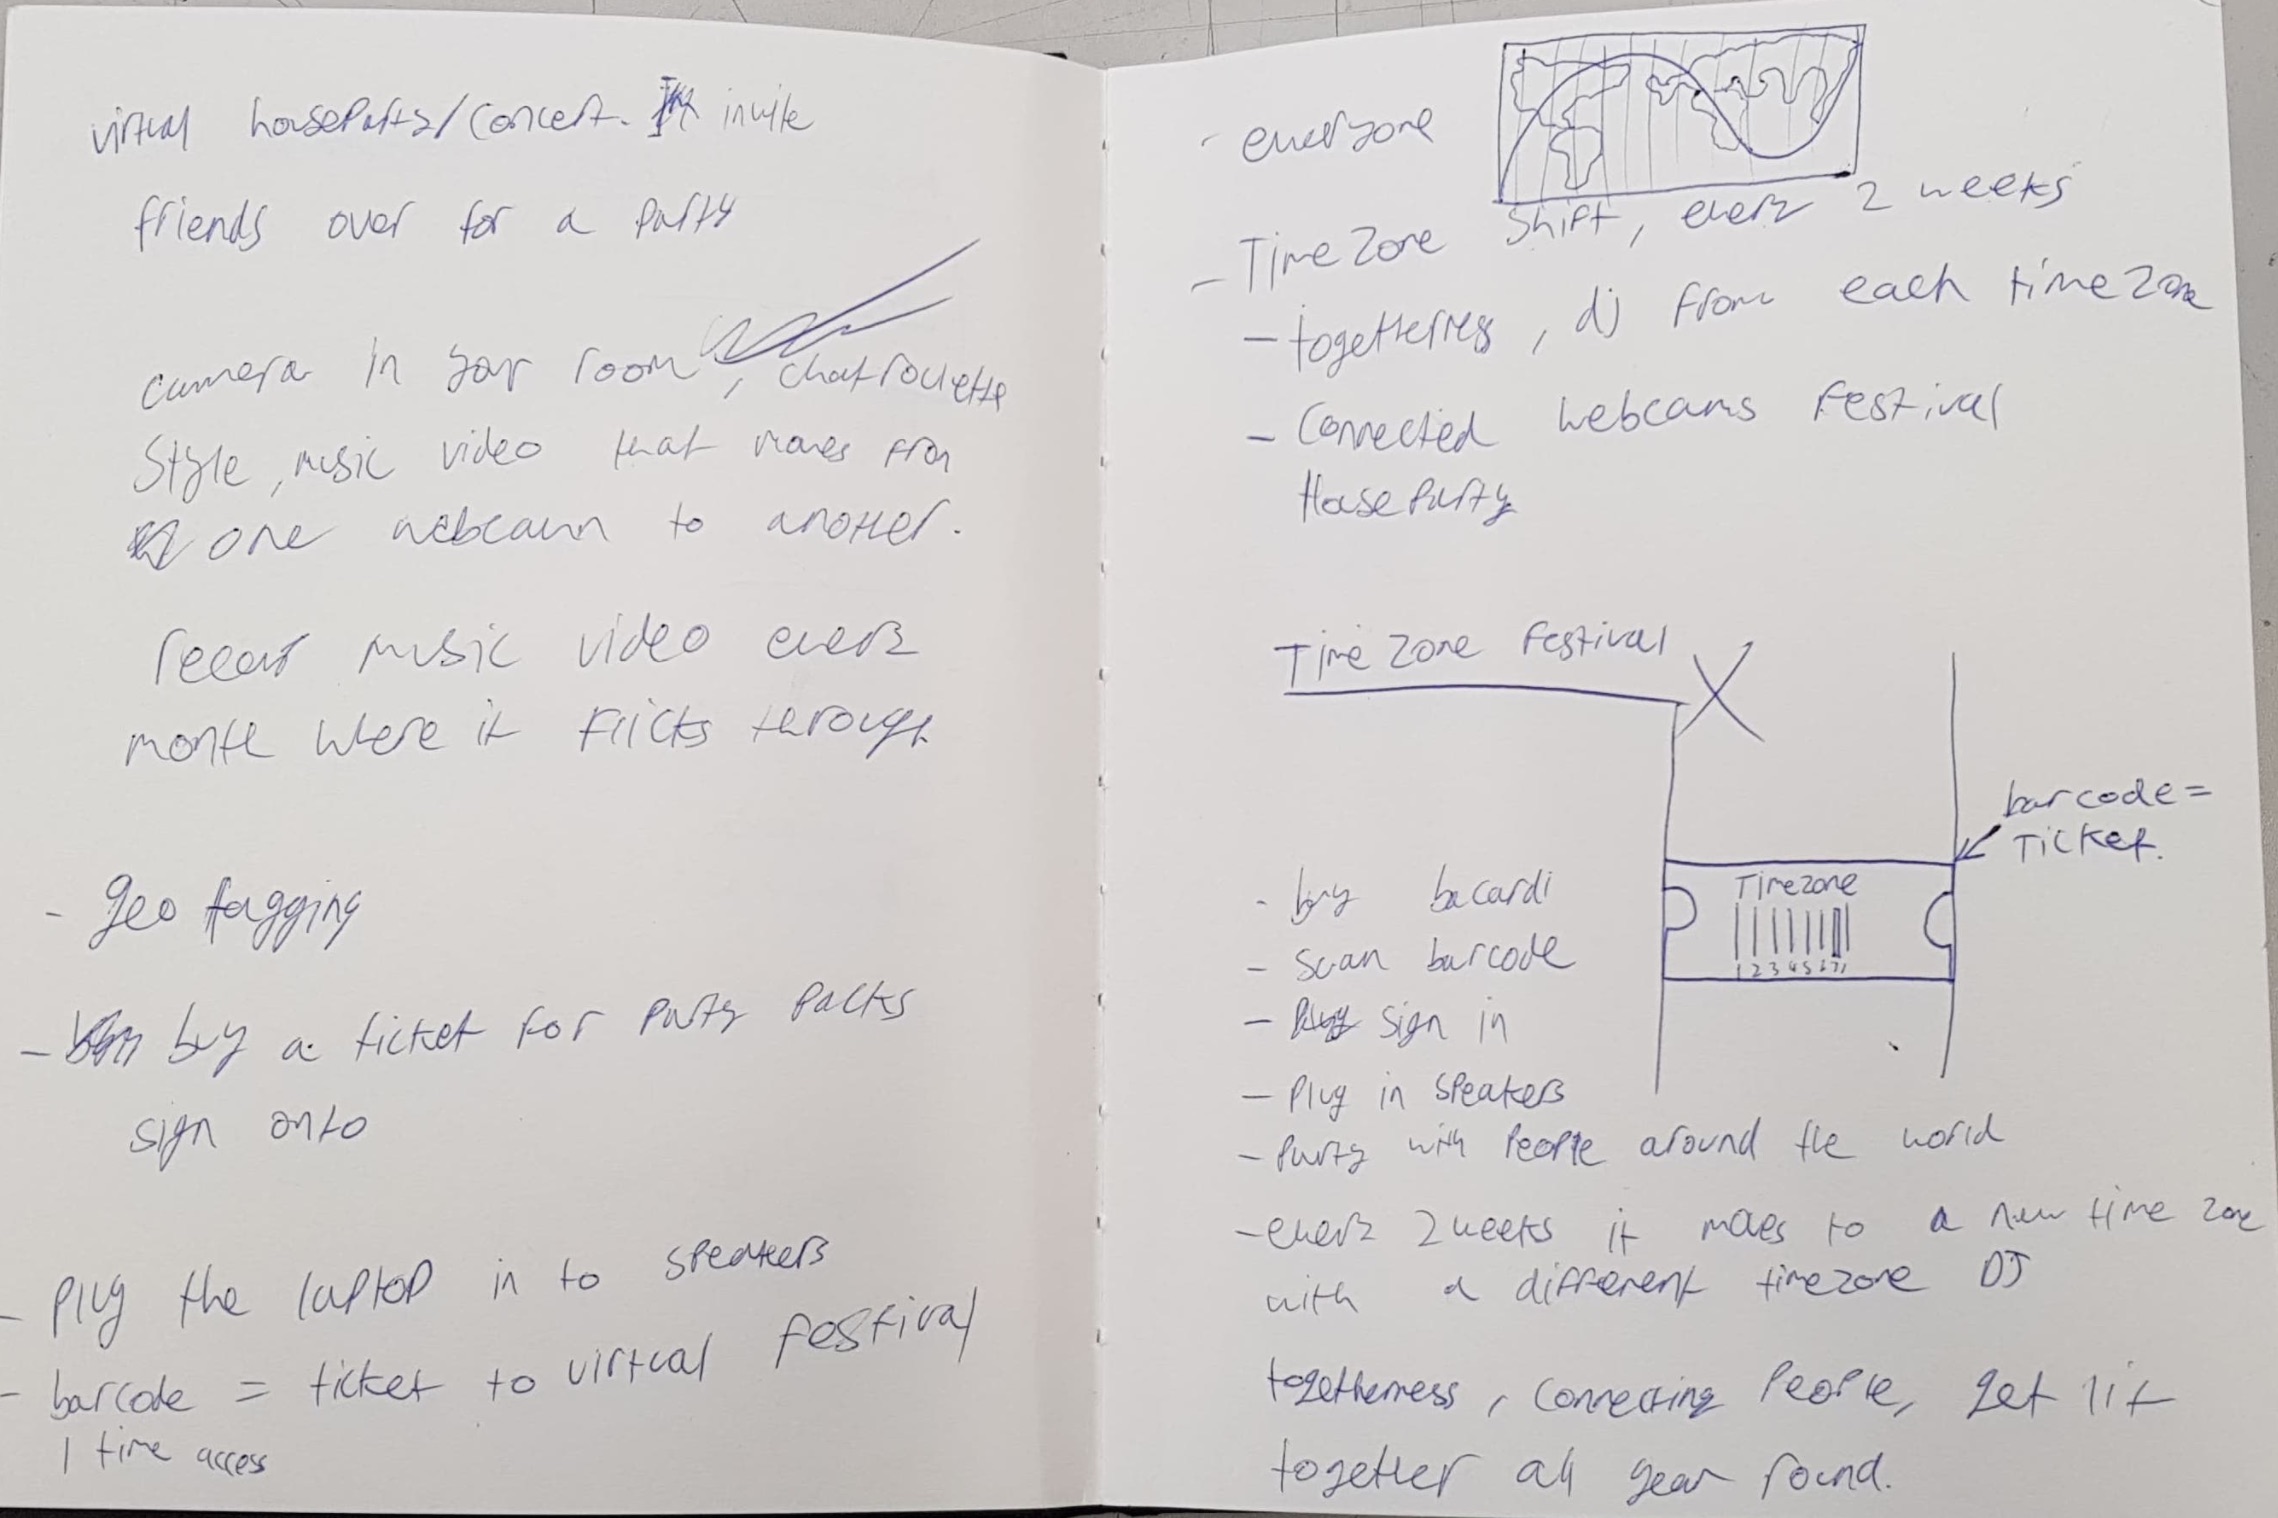 virtual houseparty/concert. invite
friends over for a party
camera in your room, chatroulette
Style, music video that moves from
one webcam to another.
music video every
month where it flicks through
- geo tagging
- buy a ticket for party packs
sign onto
- Plug the laptop in to speakers
- barcode = ticket to virtual festival
1 time access
- everyone
- Time Zone Shift, every 2 weeks
- togetherness, dj from each time zone
- Connected webcams festival
House Party
Time Zone Festival X
barcode =
Ticket.
Timezone
1 2 3 4 5 6 7 1
- buy bacardi
- Scan barcode
- sign in
- Plug in speakers
- Party with People around the world
- every 2 weeks it moves to a new time zone
with a different timezone DJ
togetherness, connecting People, get lit
together all year round.